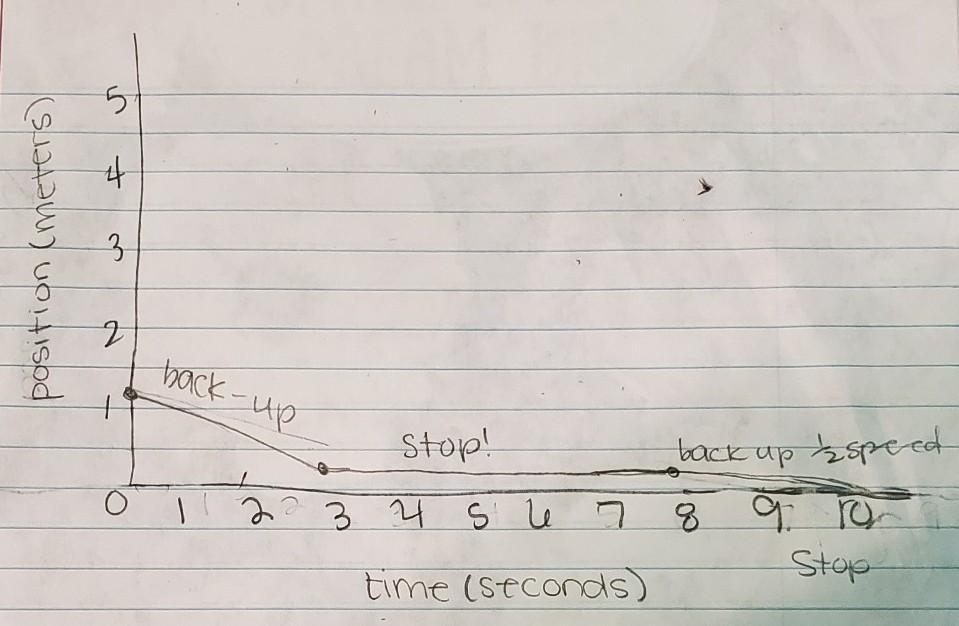 position (meters)
5
4
3
2
1
back-up
Stop!
back up ½ speed
0 1 2 3 4 5 6 7 8 9 10
Stop
time (seconds)